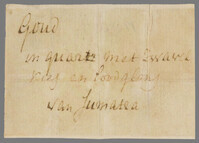 Goud
in quartz met Zwavel
Kies en Loodglans
van Sumatra